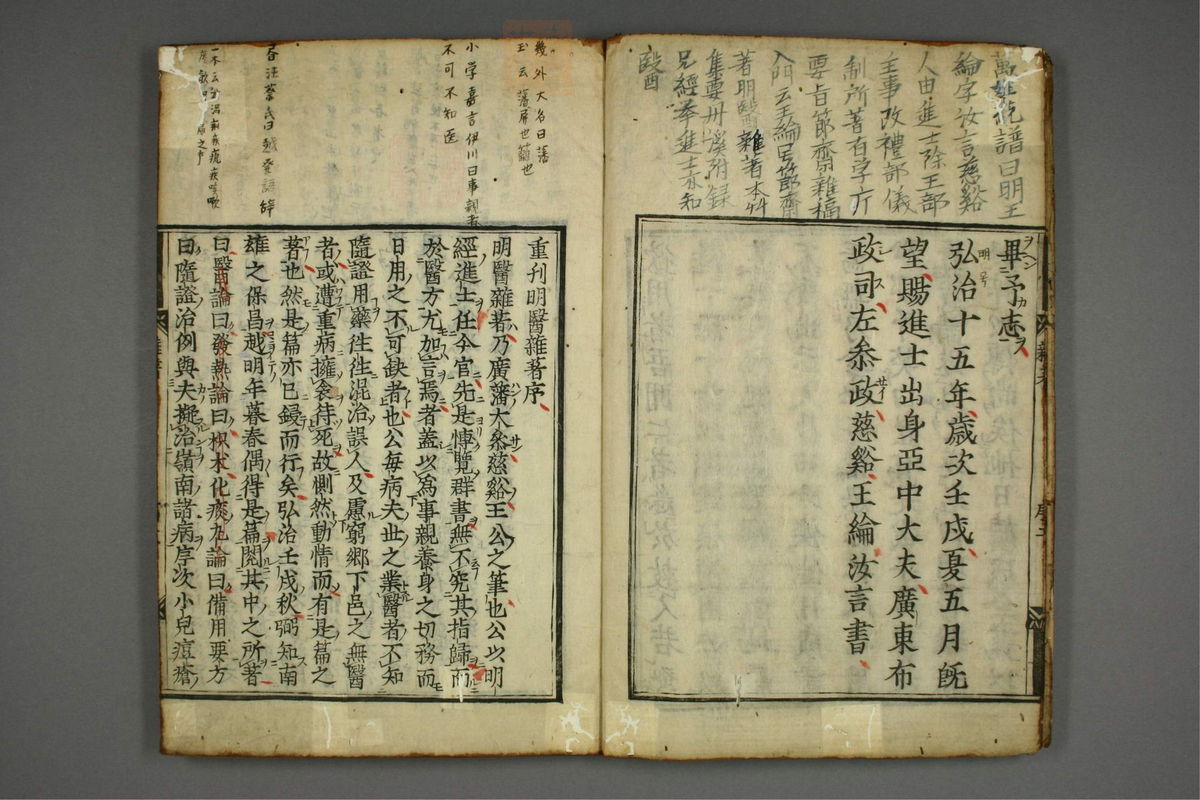 萬姓統譜曰明王
綸字汝言慈谿
人由進士除工部
主事改禮部儀
制所著有学庸
要旨節齋雜稿
入門云王綸号節齋
著明醫雜著本艸
集要丹溪附録
兄經挙進士亦知
醫
畢予志
弘治十五年歳次壬戌夏五月旣
望賜進士出身亞中大夫廣東布
政司左叅政慈谿王綸汝言書
幾外大名曰藩
玉云藩屏也籬也
小学嘉言伊川曰事親者
不可不知医
重刊明醫雜著序
明醫雜著乃廣藩大叅慈谿王公之筆也公以明
經進士任今官先是博覽群書無不究其指歸而
於醫方尤加意焉者蓋以爲事親養身之切務而
日用之不可缺者也公每病夫世之業醫者不知
隨證用藥徃徃混治誤人及慮窮鄉下邑之無醫
者或遭重病擁衾待死故惻然動情而有是篇之
著也然是篇亦已鋟而行矣弘治壬戌秋弼知南
雄之保昌越明年暮春偶得是篇閱其中之所著
曰醫論曰發熱論曰枳朮化痰丸論曰備用要方
曰隨證治例與夫擬治嶺南諸病序次小兒痘瘡